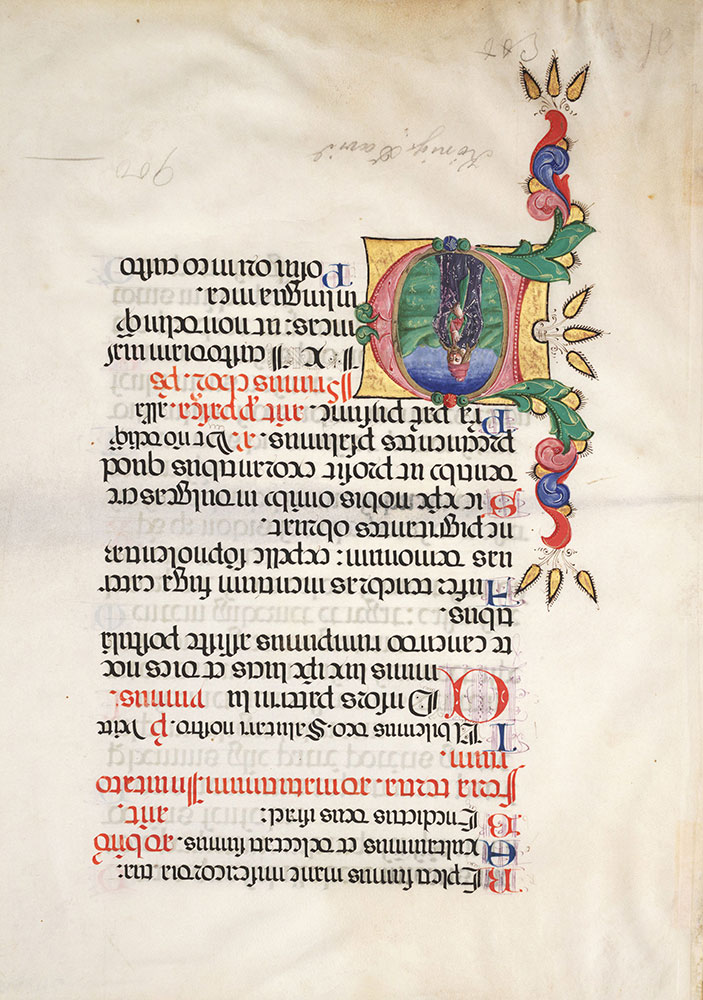 REpleti sumus mane misericordia tua:
EXaltavimus et delectati sumus.
BEnedictus deus israel: añt.
Feria tertia. ad matutinum Invitato
rium.
IUbilemus deo Salutari nostro. p̄ Venite
COnsors paterni lu ymnus:
minis lux ipse lucis et dies noc
te canendo rumpimus assiste postula
tibus.
AUfer tenebras mentium fuga cater
vas demonum: expelle sopnolentia
ne pigritantes obruat.
SIc xp̄e nobis omnibꝫ indulgeas cre
dentibꝫ ut prosit exorantibus quod
precinentes psalimus.
piissime. añt.
DIXI custodiam vias
meas: ut non delinq̄
in lingua mea.
POsui ori meo custo
König David
900